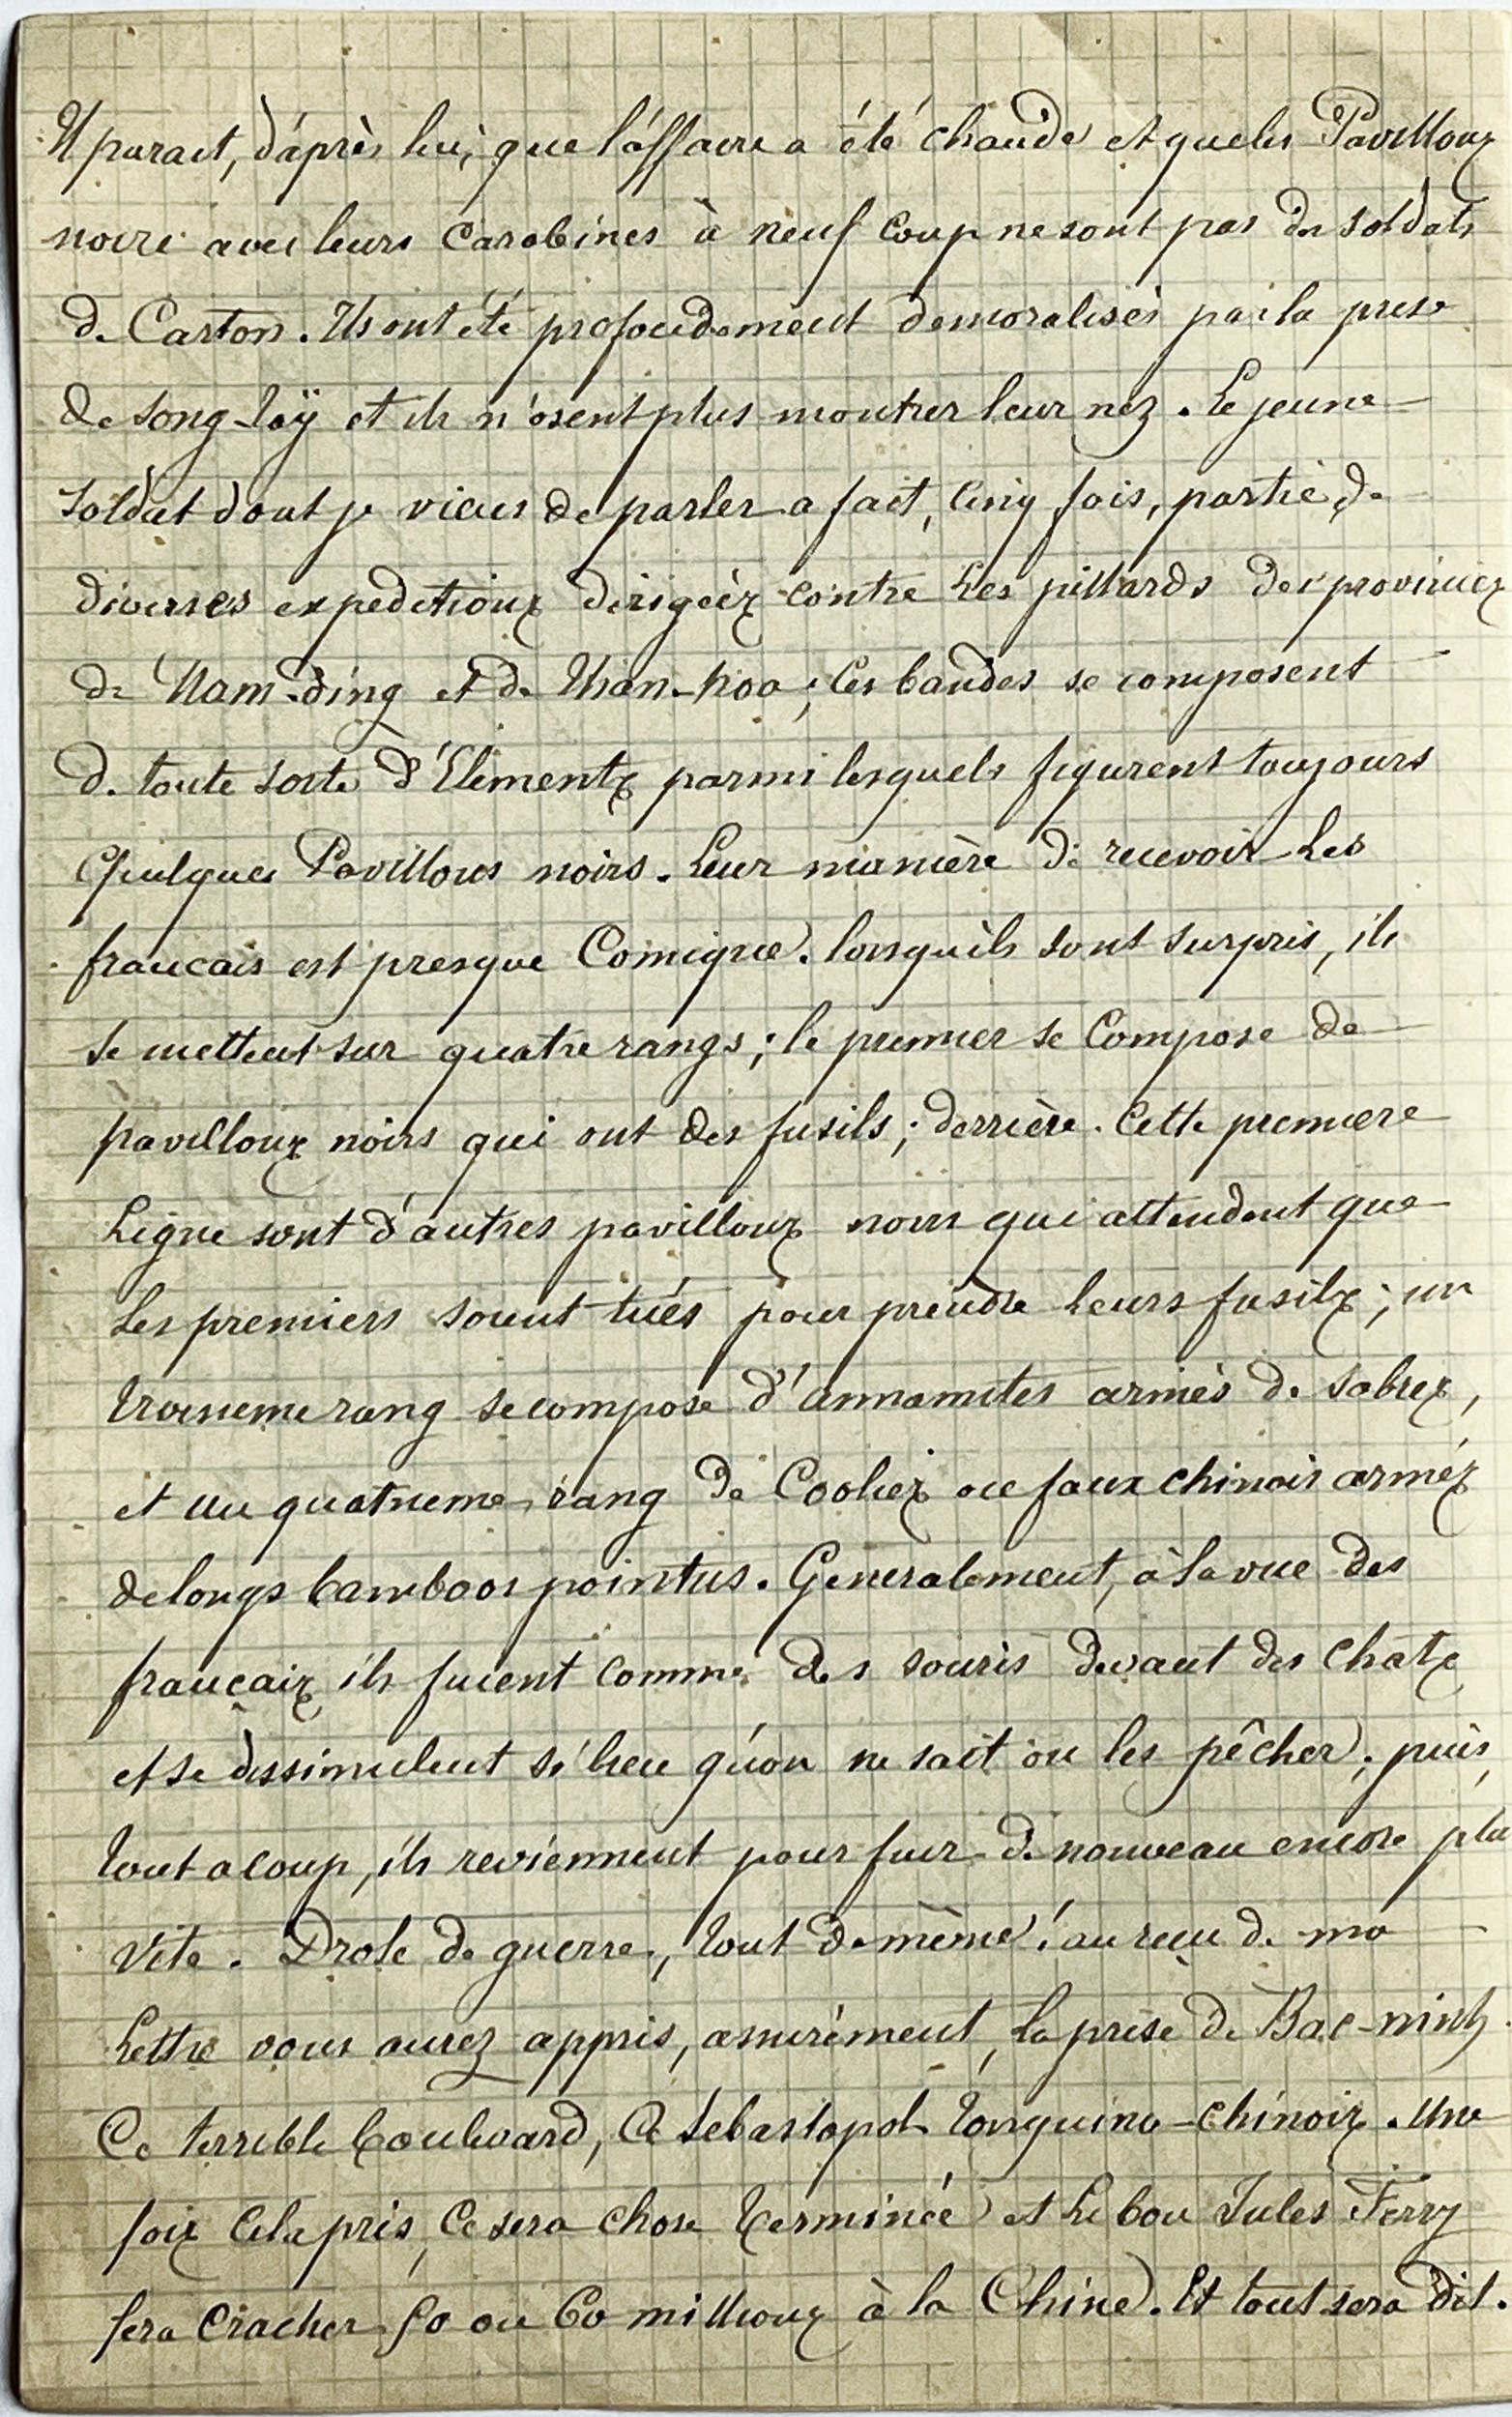 Il parait, d'après lui, que l'affaire a été chaude et que les Pavilloux
noirs avec leurs carabines à neuf coup ne sont pas des soldats
de Carton. Ils ont été profondement demoralisés par la prise
de Song-Taÿ et ils n'osent plus montrer leur nez. Le jeune
soldat dont je viens de parler a fait, cinq fois, partie de
diverses expeditioux dirigéez contre les pillards des provincez
de Nam-ding et de Than-hoa ; ces bandes se composent
de toute sorte d'Elementx parmi lesquels figurent toujours
quelques Pavillons noirs. Leur manière de recevoir les
francais est presque Comique. lorsqu'ils sont surpris, ils
se mettent sur quatre rangs ; le premier se Compose de
pavilloux noirs qui ont des fusils ; derrière cette premiere
Ligne sont d'autres pavilloux noirs qui attendent que
les premiers soient tués pour prendre leurs fusilx ; un
troisieme rang se compose d'annamites armés de sabrex,
et un quatrieme rang de Cooliez ou faux chinois arméz
de longs bamboos pointus. Generalement, à la vue des
françaix ils fuient comme des souris devant des chatx
et se dissimulent si bien qu'on ne sait où les pêcher ; puis,
tout a coup, ils reviennent pour fuir de nouveau encore plu
vite. Drole de guerre, tout de même ! au reçu de ma
Lettre vous aurez appris, assurément, la prise de Bac-ninh.
Ce terrible boulevard, Ce Sebastopol Tonquino-chinoix. Une
foix cela pris, Ce sera chose terminée et le bon Jules Ferry
fera Cracher 50 ou 60 millioux à la Chine. Et tout sera dit.